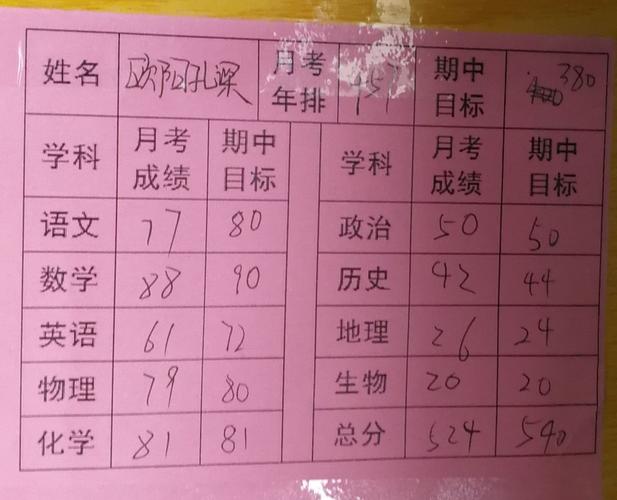 姓名 欧阳孔深 月考年排 457 期中目标 380
学科 月考成绩 期中目标 学科 月考成绩 期中目标
语文 77 80 政治 50 50
数学 88 90 历史 42 44
英语 61 72 地理 26 24
物理 79 80 生物 20 20
化学 81 81 总分 524 540